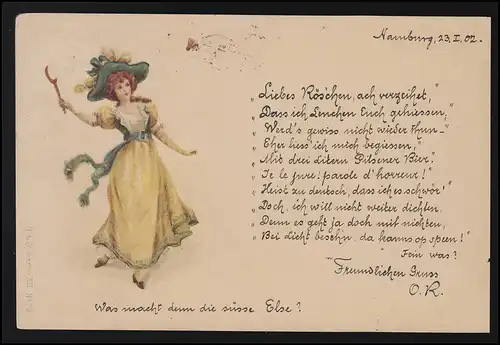 Hamburg, 23.I.02.
"Liebes Röschen, ach verzeihet,"
"Dass ich Lenchen Euch geheissen,"
"Werd's gewiss nicht wieder thun –"
"Eher liess ich mich begiessen,"
"Mit drei Litern Pilsener Bier."
"Je le jure! parole d'horreur!"
"Heist zu deutsch, dass ich es schwör'"
"Doch, ich will nicht weiter dichten,
"Denn es geht ja doch mit nichten,
"Bei Licht beseh'n, da kanns op speen!"
Fein was?
Freundlichen Gruss
O.R.
Was macht denn die süsse Else?